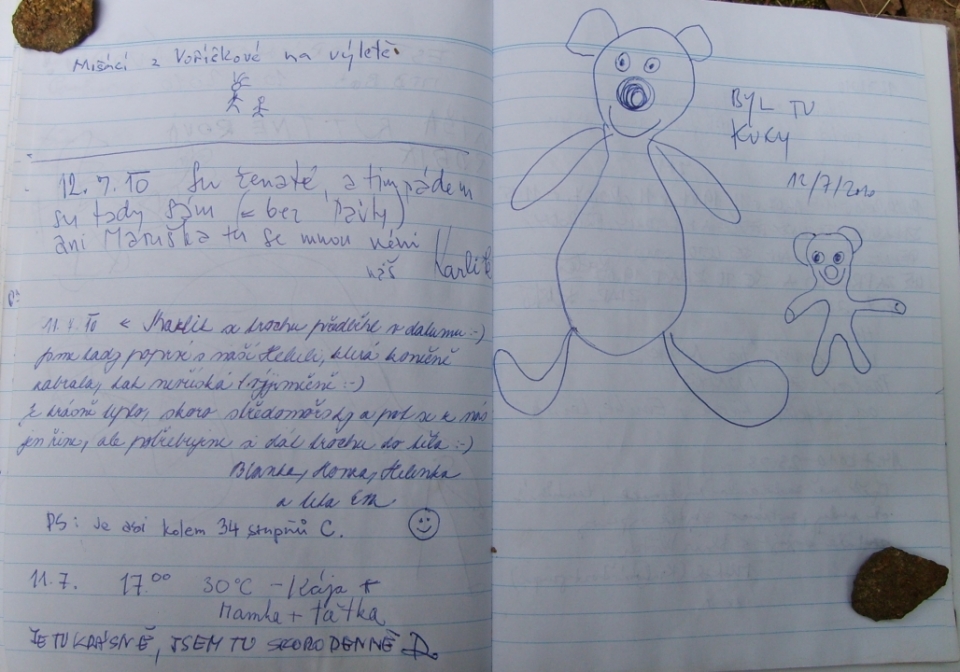 Mišáci z Voříškové na výletě
12.7.10 Su ženaté, a tim pádem
su tady sám (= bez Pavly)
ani Maruška tu se mnou néni
náš Karlik
11.7.10 ← Karlik se trochu předběhl v datumu :-)
Jsme tady poprvé s naší Helenkou, která konečně
:-)
Je krásné teplo, skoro středomořský a pot se z nás
jen řine, ale potřebujeme si dát trochu do těla :-)
Blanka, Honza, Helenka
a teta Eva
PS: Je asi kolem 34 stupňů C.
11.7. 17⁰⁰ 30°C - Kája +
Mamka + taťka
JE TU KRÁSNĚ, JSEM TU SKORO DENNĚ
BYL TU
KUKY
12/7/2010